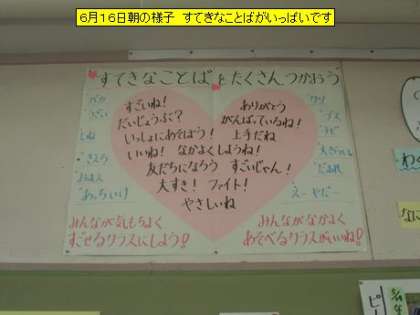 6月16日朝の様子 すてきなことばがいっぱいです
すてきなことばをたくさんつかおう
すごいね!
だいじょうぶ?
いっしょにあそぼう!
いいね! なかよくしようね!
友だちになろう すごいじゃん!
大すき! ファイト!
やさしいね
ありがとう
がんばっているね!
上手だね
バカ
うざい
しね
きえろ
あっちいけ
クソ
ブス
チビ
えーやだー
みんなが気もちよく
すごせるクラスにしよう!
みんながなかよく
あそべるクラスがいいね!